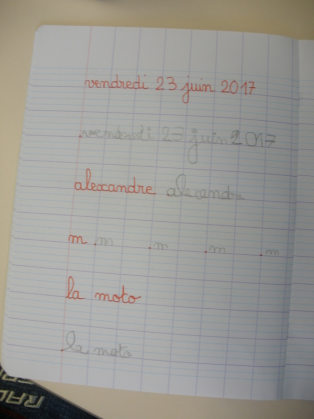 vendredi 23 juin 2017
vendredi 23 juin 2017
alexandre alexandre
m m m m m
la moto
la moto